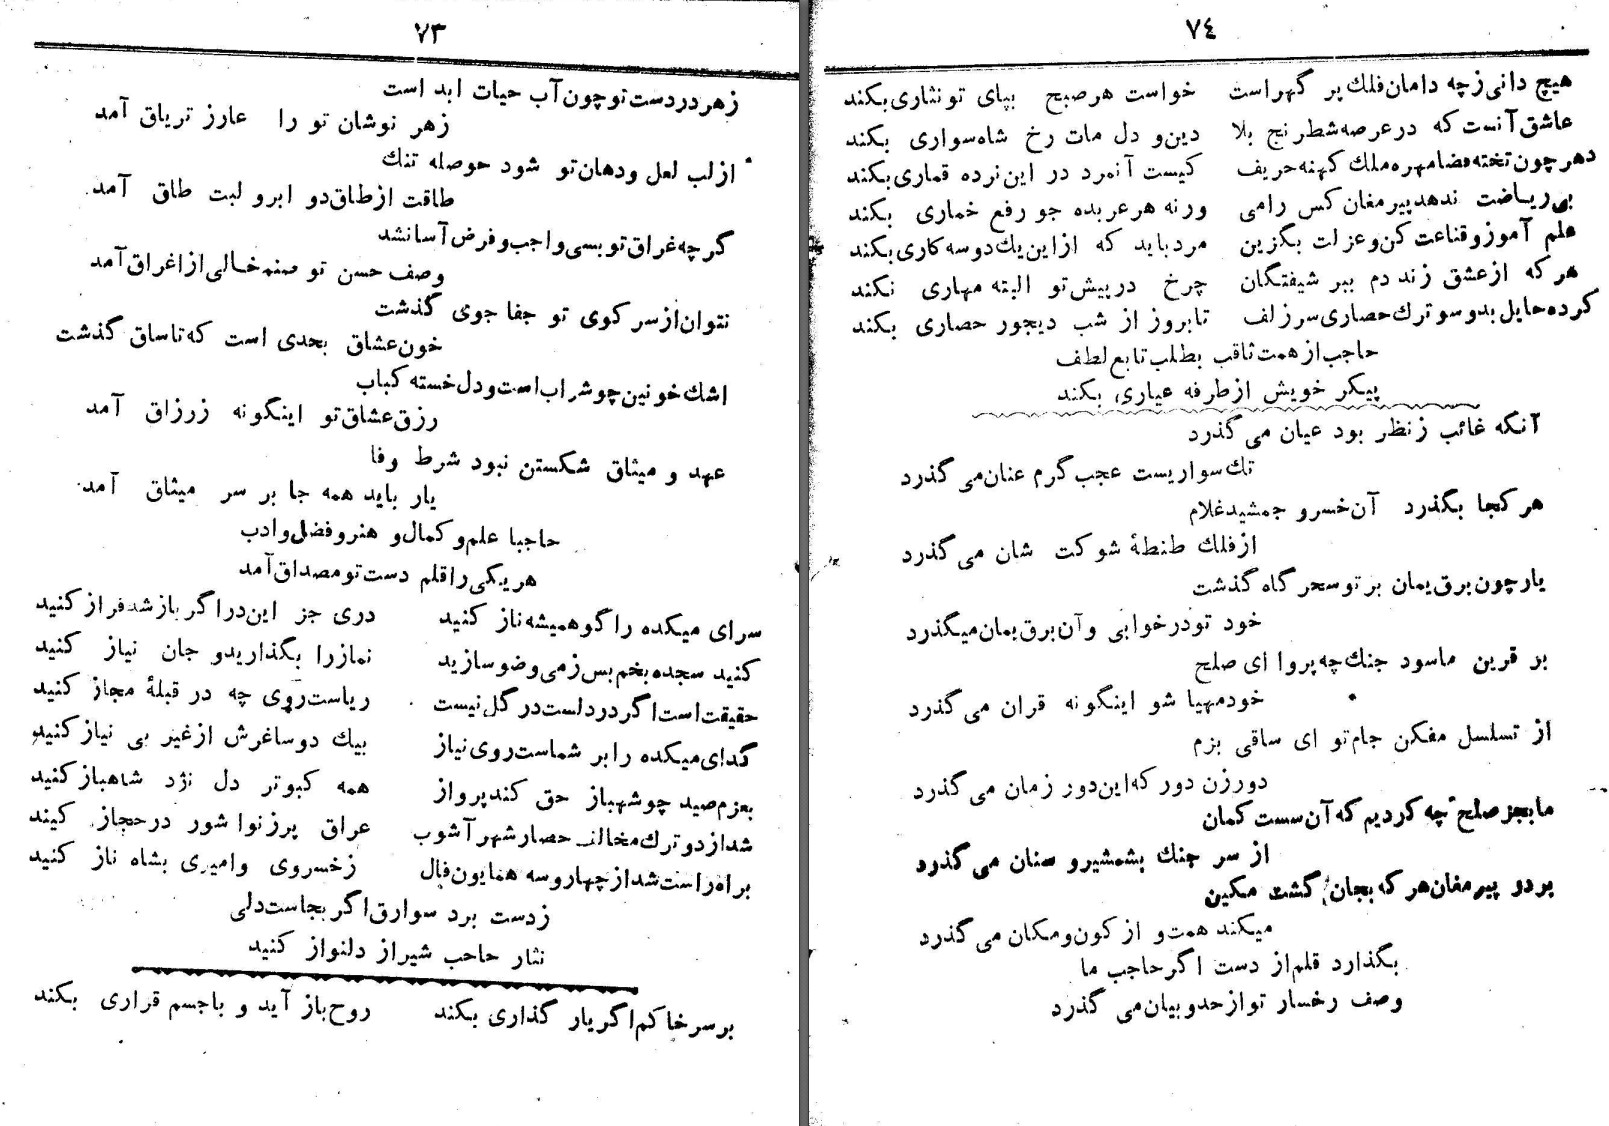 ۷۳
زهر در دست تو چون آب حیات ابد است
زهر نوشان تو را عار ز تریاق آمد
از لب لعل و دهان تو شود حوصله تنك
طاقت از طاق دو ابرو لبت طاق آمد
گرچه غراق تو بسی واجب و فرض آسانشد
وصف حسن تو صنم خالی از اغراق آمد
نتوان از سر کوی تو جفا جوی گذشت
خون عشاق بحدی است که تا ساق گذشت
اشك خونین چو شراب است و دل خسته کباب
رزق عشاق تو اینگونه ز رزاق آمد
عهد و میثاق شکستن نبود شرط وفا
یار باید همه جا بر سر میثاق آمد
حاجبا علم و کمال و هنر و فضل و ادب
هر یکی را قلم دست تو مصداق آمد
سرای میکده را گو همیشه ناز کنید دری جز این در اگر باز شد فراز کنید
کنید سجده بخم بس زمی وضو سازید نماز را بگذارید و جان نیاز کنید
حقیقت است اگر در دلست در گل نیست ریاست روی چه در قبلهٔ مجاز کنید
گدای میکده را بر شماست روی نیاز بیك دو ساغرش از غیر بی نیاز کنید
بعزم صید چو شهباز حق کند پرواز همه کبوتر دل نژد شاهباز کنید
شد از دو ترك مخالف حصار شهر آشوب عراق پرز نوا شور در حجاز کنید
براه راست شد از چهار و سه همایون فال ز خسروی و امیری بشاه ناز کنید
ز دست برد سوارق اگر بجاست دلی
نثار حاجب شیراز دلنواز کنید
بر سر خاکم اگر یار گذاری بکند روح باز آید و با جسم قراری بکند
۷٤
هیچ دانی ز چه دامان فلك پر گهر است خواست هر صبح بپای تو نثاری بکند
عاشق آنست که در عرصه شطرنج بلا دین و دل مات رخ شاه سواری بکند
دهر چون تخته فضا مهره ملك کهنه حریف کیست آنمرد در این نرده قماری بکند
بی ریاضت ندهد پیر مغان کس را می ورنه هر عربده جو رفع خماری بکند
علم آموز و قناعت کن و عزلت بگزین مرد باید که از این یك دو سه کاری بکند
هر که از عشق زند دم ببر شیفتگان چرخ در بیش تو البته مهاری نکند
کرده حایل بدو سو ترك حصاری سر زلف تا بروز از شب دیجور حصاری بکند
حاجب از همت ثاقب بطلب تابع لطف
پیکر خویش از طرفه عیاری بکند
آنکه غائب ز نظر بود عیان می گذرد
تك سواریست عجب گرم عنان می گذرد
هر کجا بگذرد آن خسرو جمشید غلام
از فلك طنطهٔ شوکت شان می گذرد
یار چون برق یمان بر تو سحر گاه گذشت
خود تو در خوابی و آن برق یمان میگذرد
بر قرین ماسود جنك چه پروا ای صلح
خود مهیا شو اینگونه قران می گذرد
از تسلسل مفکن جام تو ای ساقی بزم
دور زن دور که این دور زمان می گذرد
ما بجز صلح چه کردیم که آن سست کمان
از سر جنك بشمشیر و سنان می گذرد
بر دو پیر مغان هر که بجان گشت مکین
میکند همت و از کون و مکان می گذرد
بگذارد قلم از دست اگر حاجب ما
وصف رخسار تو از حد و بیان می گذرد